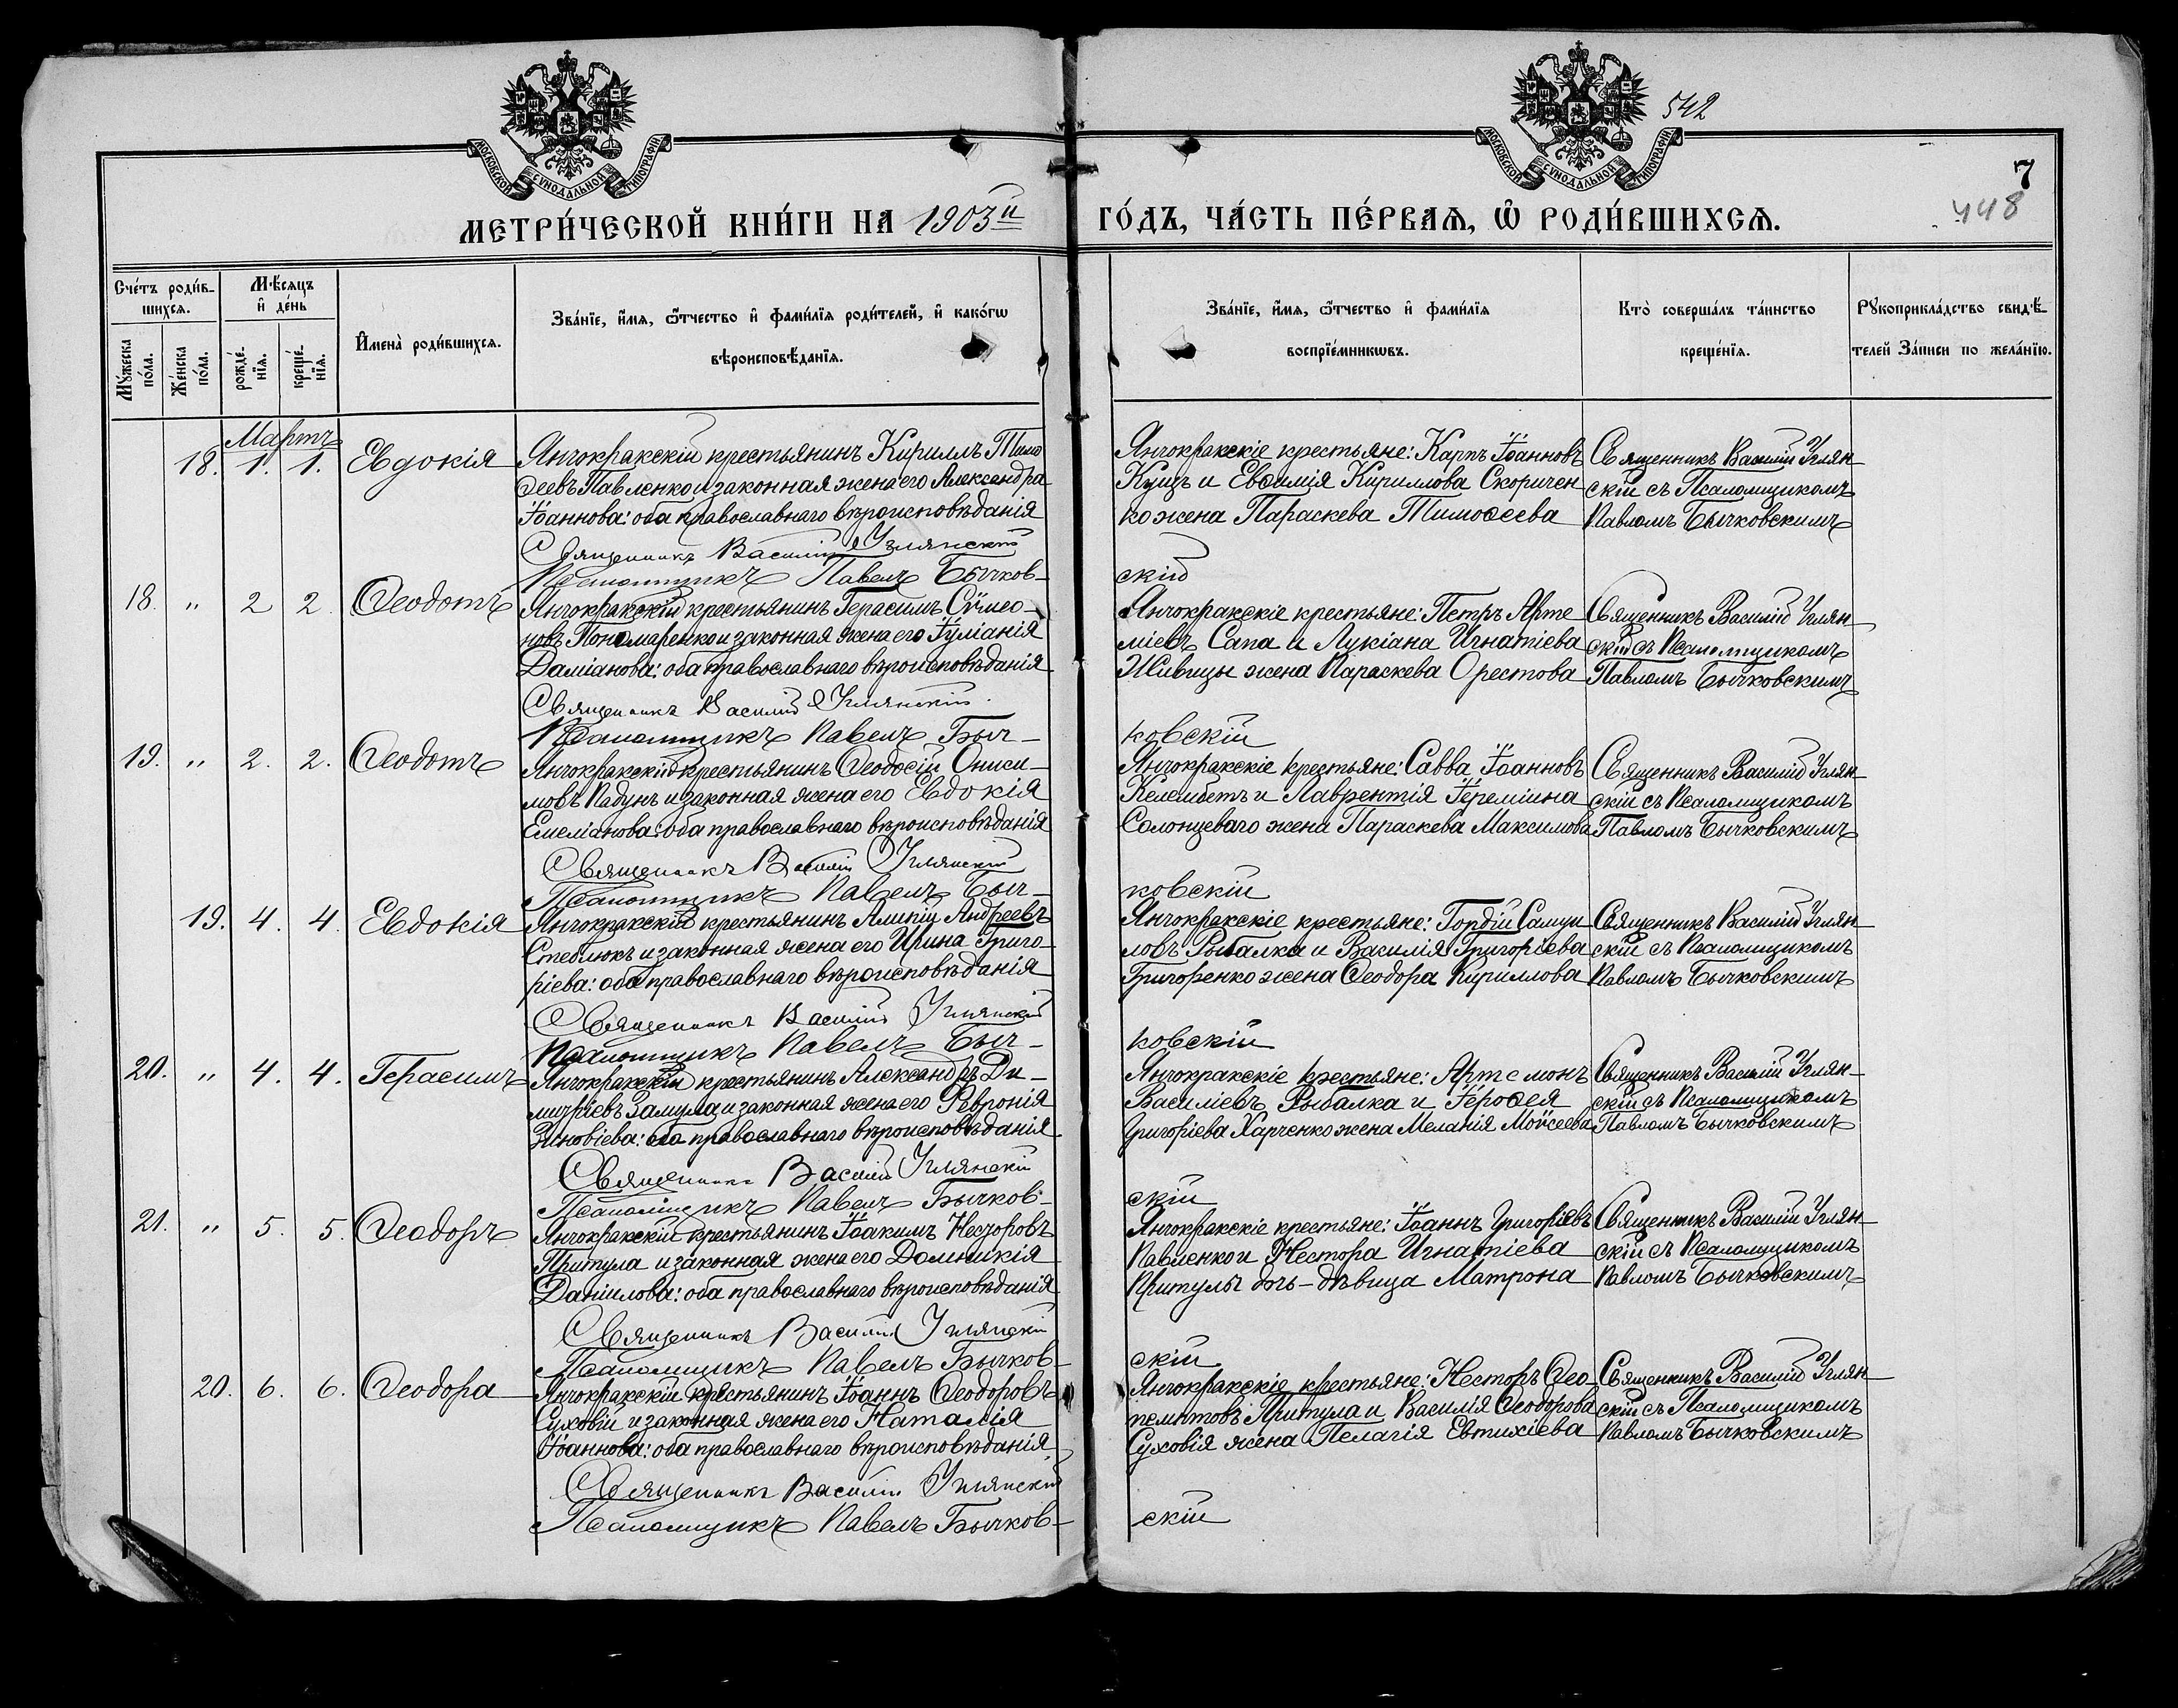 МОСКОВСКОЙ СѴНОДАЛЬНОЙ ТИПОГРАФІИ
МОСКОВСКОЙ СѴНОДАЛЬНОЙ ТИПОГРАФІИ
542
7
448
МЕТРИ́ЧЕСКОЙ КНИ́ГИ НА 1903й ГО́ДЪ, ЧА́СТЬ ПЕ́РВАѦ, Ѡ҆ РОДИ́ВШИХСѦ.
Сче́тъ роди́в-
шихсѧ.
Му́жеска по́ла.
Же́нска по́ла.
Мѣ́сѧцъ
и҆ де́нь
рожде́-
нїѧ.
креще́-
нїѧ.
И҆мена̀ роди́вшихсѧ.
Зва́нїе, и҆́мѧ, ѻ҆́тчество и҆ фами́лїѧ роди́телей, и҆ како́гѡ
вѣроисповѣ́данїѧ.
Зва́нїе, и҆́мѧ, ѻ҆́тчество и҆ фами́лїѧ
воспрїе́мникѡвъ.
Кто̀ соверша́лъ та́инство
креще́нїѧ.
Рꙋкоприкла́дство свидѣ́-
телей За́писи по жела́нїю.
Мартъ
18. 1. 1. Евдокія
Янчокракскій крестьянинъ Кириллъ Тимо
ѳеевъ Павленко и законная жена его Александра
Іоаннова: оба православнаго вѣроисповѣданія
Священникъ Василій Углянскій
Псаломщикъ Павелъ Бычков-
скій
Янчокракскіе крестьяне: Карпъ Іоанновъ
Куцъ и Евѳимія Кириллова Скоричен
ко жена Параскева Тимоѳеева
Священникъ Василій Углян
скій съ Псаломщикомъ
Павломъ Бычковскимъ
18. " 2 2 Ѳеодотъ
Янчокракскій крестьянинъ Герасимъ Сѵмео-
новъ Пономаренко и законная жена его Іуліанія
Даміанова: оба православнаго вѣроисповѣданія
Священникъ Василій Углянскій.
Псаломщикъ Павелъ Быч-
ковскій
Янчокракскіе крестьяне: Петръ Арте
міевъ Сапа и Лукіана Игнатіева
Живицы жена Параскева Орестова
Священникъ Василій Углян
скій съ Псаломщикомъ
Павломъ Бычковскимъ
19. " 2. 2. Ѳеодотъ
Янчокракскій крестьянинъ Ѳеодосій Ониси-
мовъ Падунъ и законная жена его Евдокія
Емеліанова: оба православнаго вѣроисповѣданія
Священникъ Василій Углянскій
Псаломщикъ Павелъ Быч-
ковскій
Янчокракскіе крестьяне: Савва Іоанновъ
Келембетъ и Лаврентія Іереміина
Солонцеваго жена Параскева Максимова
Священникъ Василій Углян
скій съ Псаломщикомъ
Павломъ Бычковскимъ
19. 4. 4. Евдокія
Янчокракскій крестьянинъ Алипій Андреевъ
Стеблюкъ и законная жена его Ирина Григо-
ріева: оба православнаго вѣроисповѣданія
Священникъ Василій Углянскій
Псаломщикъ Павелъ Быч-
ковскій
Янчокракскіе крестьяне: Гордій Самуи
ловъ Рыбалка и Василія Григоріева
Григоренко жена Ѳеодора Кириллова
Священникъ Василій Углян
скій съ Псаломщикомъ
Павломъ Бычковскимъ
20. " 4. 4. Герасимъ
Янчокракскій крестьянинъ Александръ Ди-
митріевъ Замула и законная жена его Февронія
Зиновіева: оба православнаго вѣроисповѣданія
Священникъ Василій Углянскій
Псаломщикъ Павелъ Бычков-
скій
Янчокракскіе крестьяне: Артемонъ
Василіевъ Рыбалка и Іероѳея
Григоріева Харченко жена Меланія Моѵсеева
Священникъ Василій Углян-
скій съ Псаломщикомъ
Павломъ Бычковскимъ
21. " 5. 5. Ѳеодоръ
Янчокракскій крестьянинъ Іоакимъ Несторовъ
Притула и законная жена его Домникія
Даніилова: оба православнаго вѣроисповѣданія
Священникъ Василій Углянскій
Псаломщикъ Павелъ Бычков-
скій
Янчокракскіе крестьяне: Іоаннъ Григоріевъ
Павленко и Нестора Игнатіева
Притулы дочь-дѣвица Матрона
Священникъ Василій Углян-
скій съ Псаломщикомъ
Павломъ Бычковскимъ
20. 6. 6. Ѳеодора
Янчокракскій крестьянинъ Іоаннъ Ѳеодоровъ
Суховій и законная жена его Наталія
Іоаннова: оба православнаго вѣроисповѣданія
Священникъ Василій Углянскій
Псаломщикъ Павелъ Бычков-
скій
Янчокракскіе крестьяне: Несторъ Ѳео-
пемптовъ Притула и Василія Ѳеодорова
Суховія жена Пелагія Евтихіева
Священникъ Василій Углян
скій съ Псаломщикомъ
Павломъ Бычковскимъ